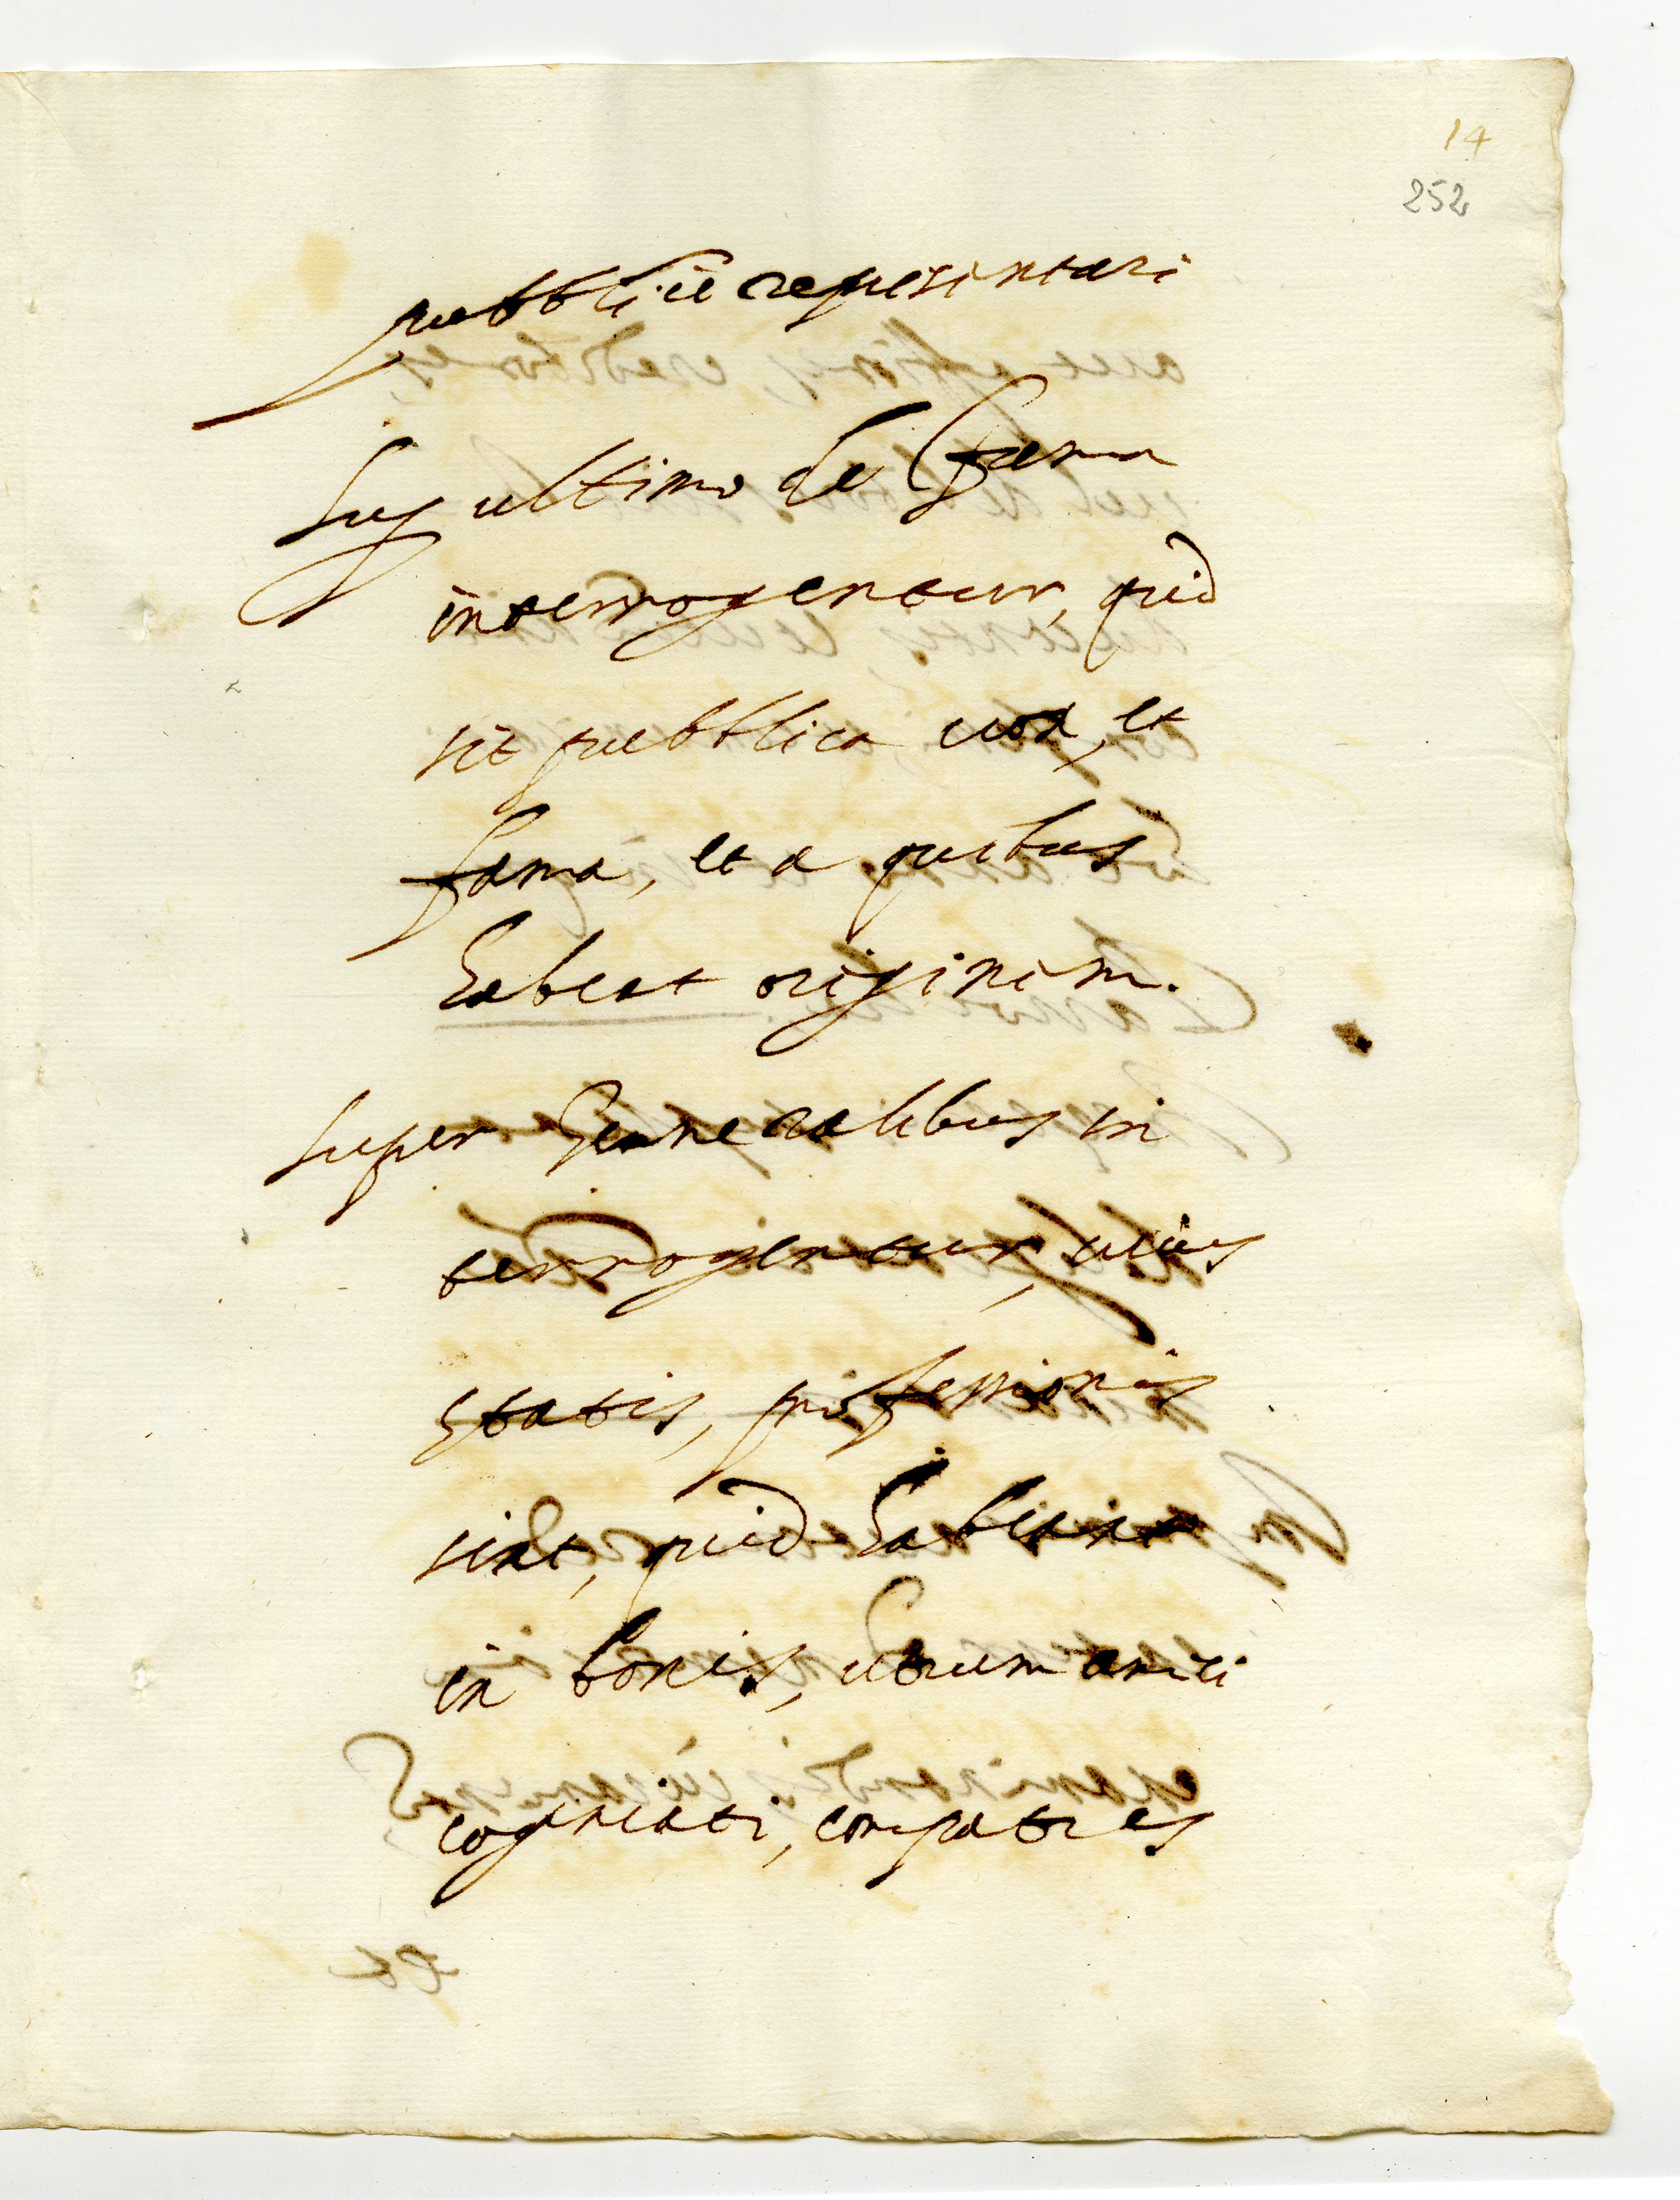 14
252
pubblicè representari
Sup ultimo de fama
interrogentur, quid
sit pubblica vox, et
fama, et a quibus
habeat originem.
Super Generalibus in
terrogentur, cuius
etatis, professionis
sint, quid habeant
in bonis, utrum amici
cogniati, compatres